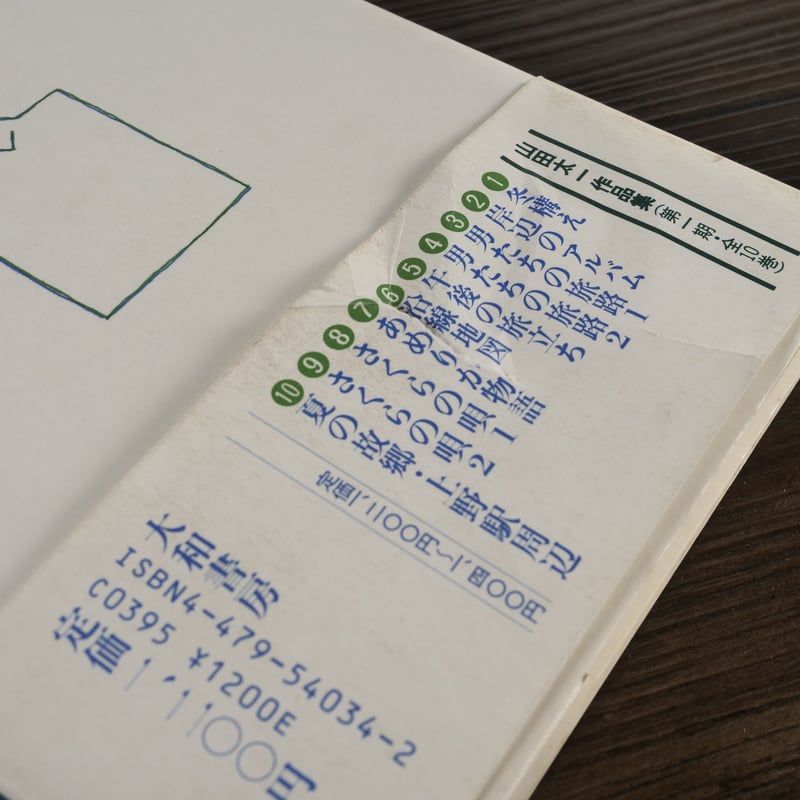 山田太一作品集(第一期・全10巻)
1 冬構え
2 岸辺のアルバム
3 男たちの旅路1
4 男たちの旅路2
5 午後の旅立ち
6 沿線地図
7 あめりか物語
8 さくらの唄1
9 さくらの唄2
10 夏の故郷・上野駅周辺
定価一、二〇〇円〜一、四〇〇円
大和書房
ISBN4-479-54034-2
C0395 ¥1200E
定価一、二〇〇円